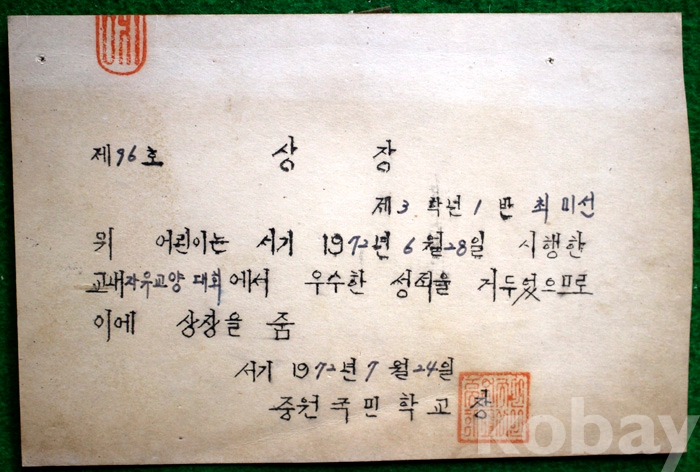 제96호 상장
제3학년1반 최미선
위 어린이는 서기 1972년 6월28일 시행한
교내자유교양 대회에서 우수한 성적을 거두었으므로
이에 상장을 줌
서기 1972년 7월 24일
중원국민학교장
kobay